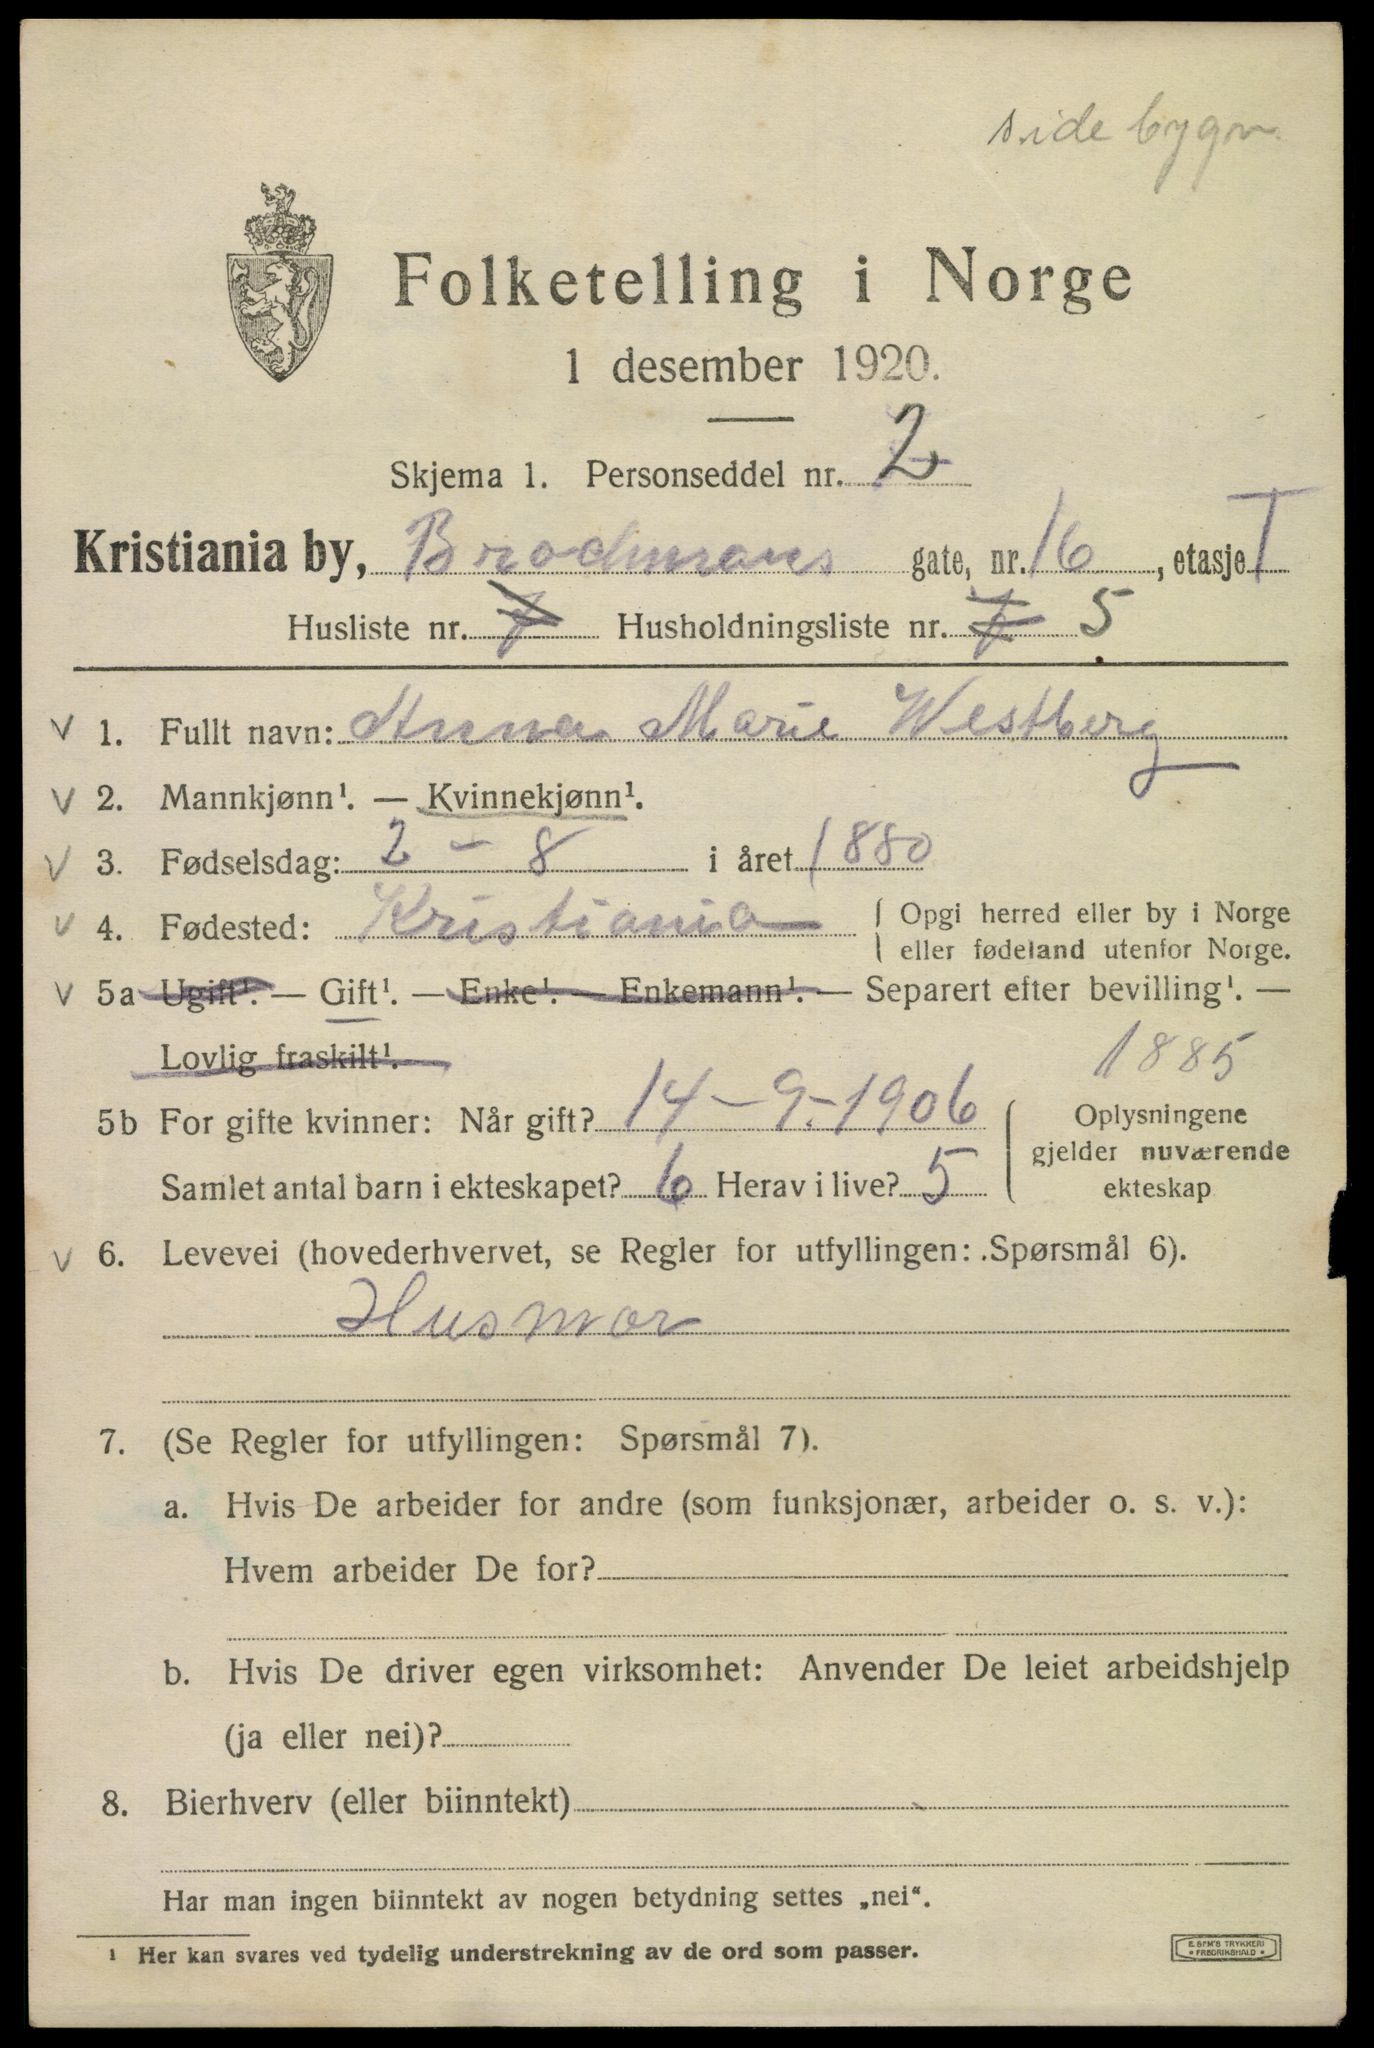 side bygn.
Folketelling i Norge
1 desember 1920.
Skjema 1. Personseddel nr. 2
Kristiania by, Brochmans gate, nr. 16, etasje I
Husliste nr. 7 Husholdningsliste nr. 7 5
V 1. Fullt navn: Anna Marie Westberg
V 2. Mannkjønn¹. — Kvinnekjønn¹.
V 3. Fødselsdag: 2 - 8 i året 1880
V 4. Fødested: Kristiania { Opgi herred eller by i Norge
eller fødeland utenfor Norge.
V 5a Ugift¹. — Gift¹. — Enke¹. — Enkemann¹. — Separert efter bevilling¹. —
Lovlig fraskilt¹.
1885
5b For gifte kvinner: Når gift? 14-9.-1906
Samlet antal barn i ekteskapet? 6 Herav i live? 5
Oplysningene
gjelder nuværende
ekteskap
V 6. Levevei (hovederhvervet, se Regler for utfyllingen: .Spørsmål 6).
Husmor
7. (Se Regler for utfyllingen: Spørsmål 7).
a. Hvis De arbeider for andre (som funksjonær, arbeider o. s. v.):
Hvem arbeider De for?
b. Hvis De driver egen virksomhet: Anvender De leiet arbeidshjelp
(ja eller nei)?
8. Bierhverv (eller biinntekt)
Har man ingen biinntekt av nogen betydning settes „nei“.
¹ Her kan svares ved tydelig understrekning av de ord som passer.
E. SEM'S TRYKKERI
• FREDRIKSHALD •